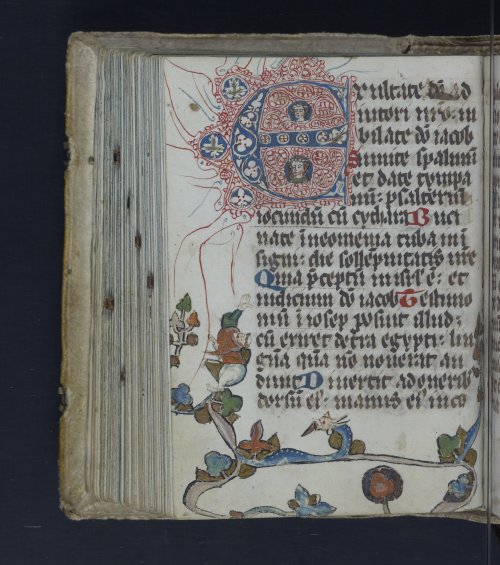 Exultate deo ad
iutori nro: iu
bilate deo iacob
Sumite psalmum
et date tympa
num: psalterium
iocundum cum cythara Buci
nate in neomenia tuba: in in
signi: die sollempnitatis nre
Quia preceptum in isrl e: et
iudicium deo iacob Testimo
nium in ioseph posuit illud:
cum exiret de tra egypti: lin
guam quam non noverat au
diuit Divertit ab oneribus
dorsum eius: manus eius in co